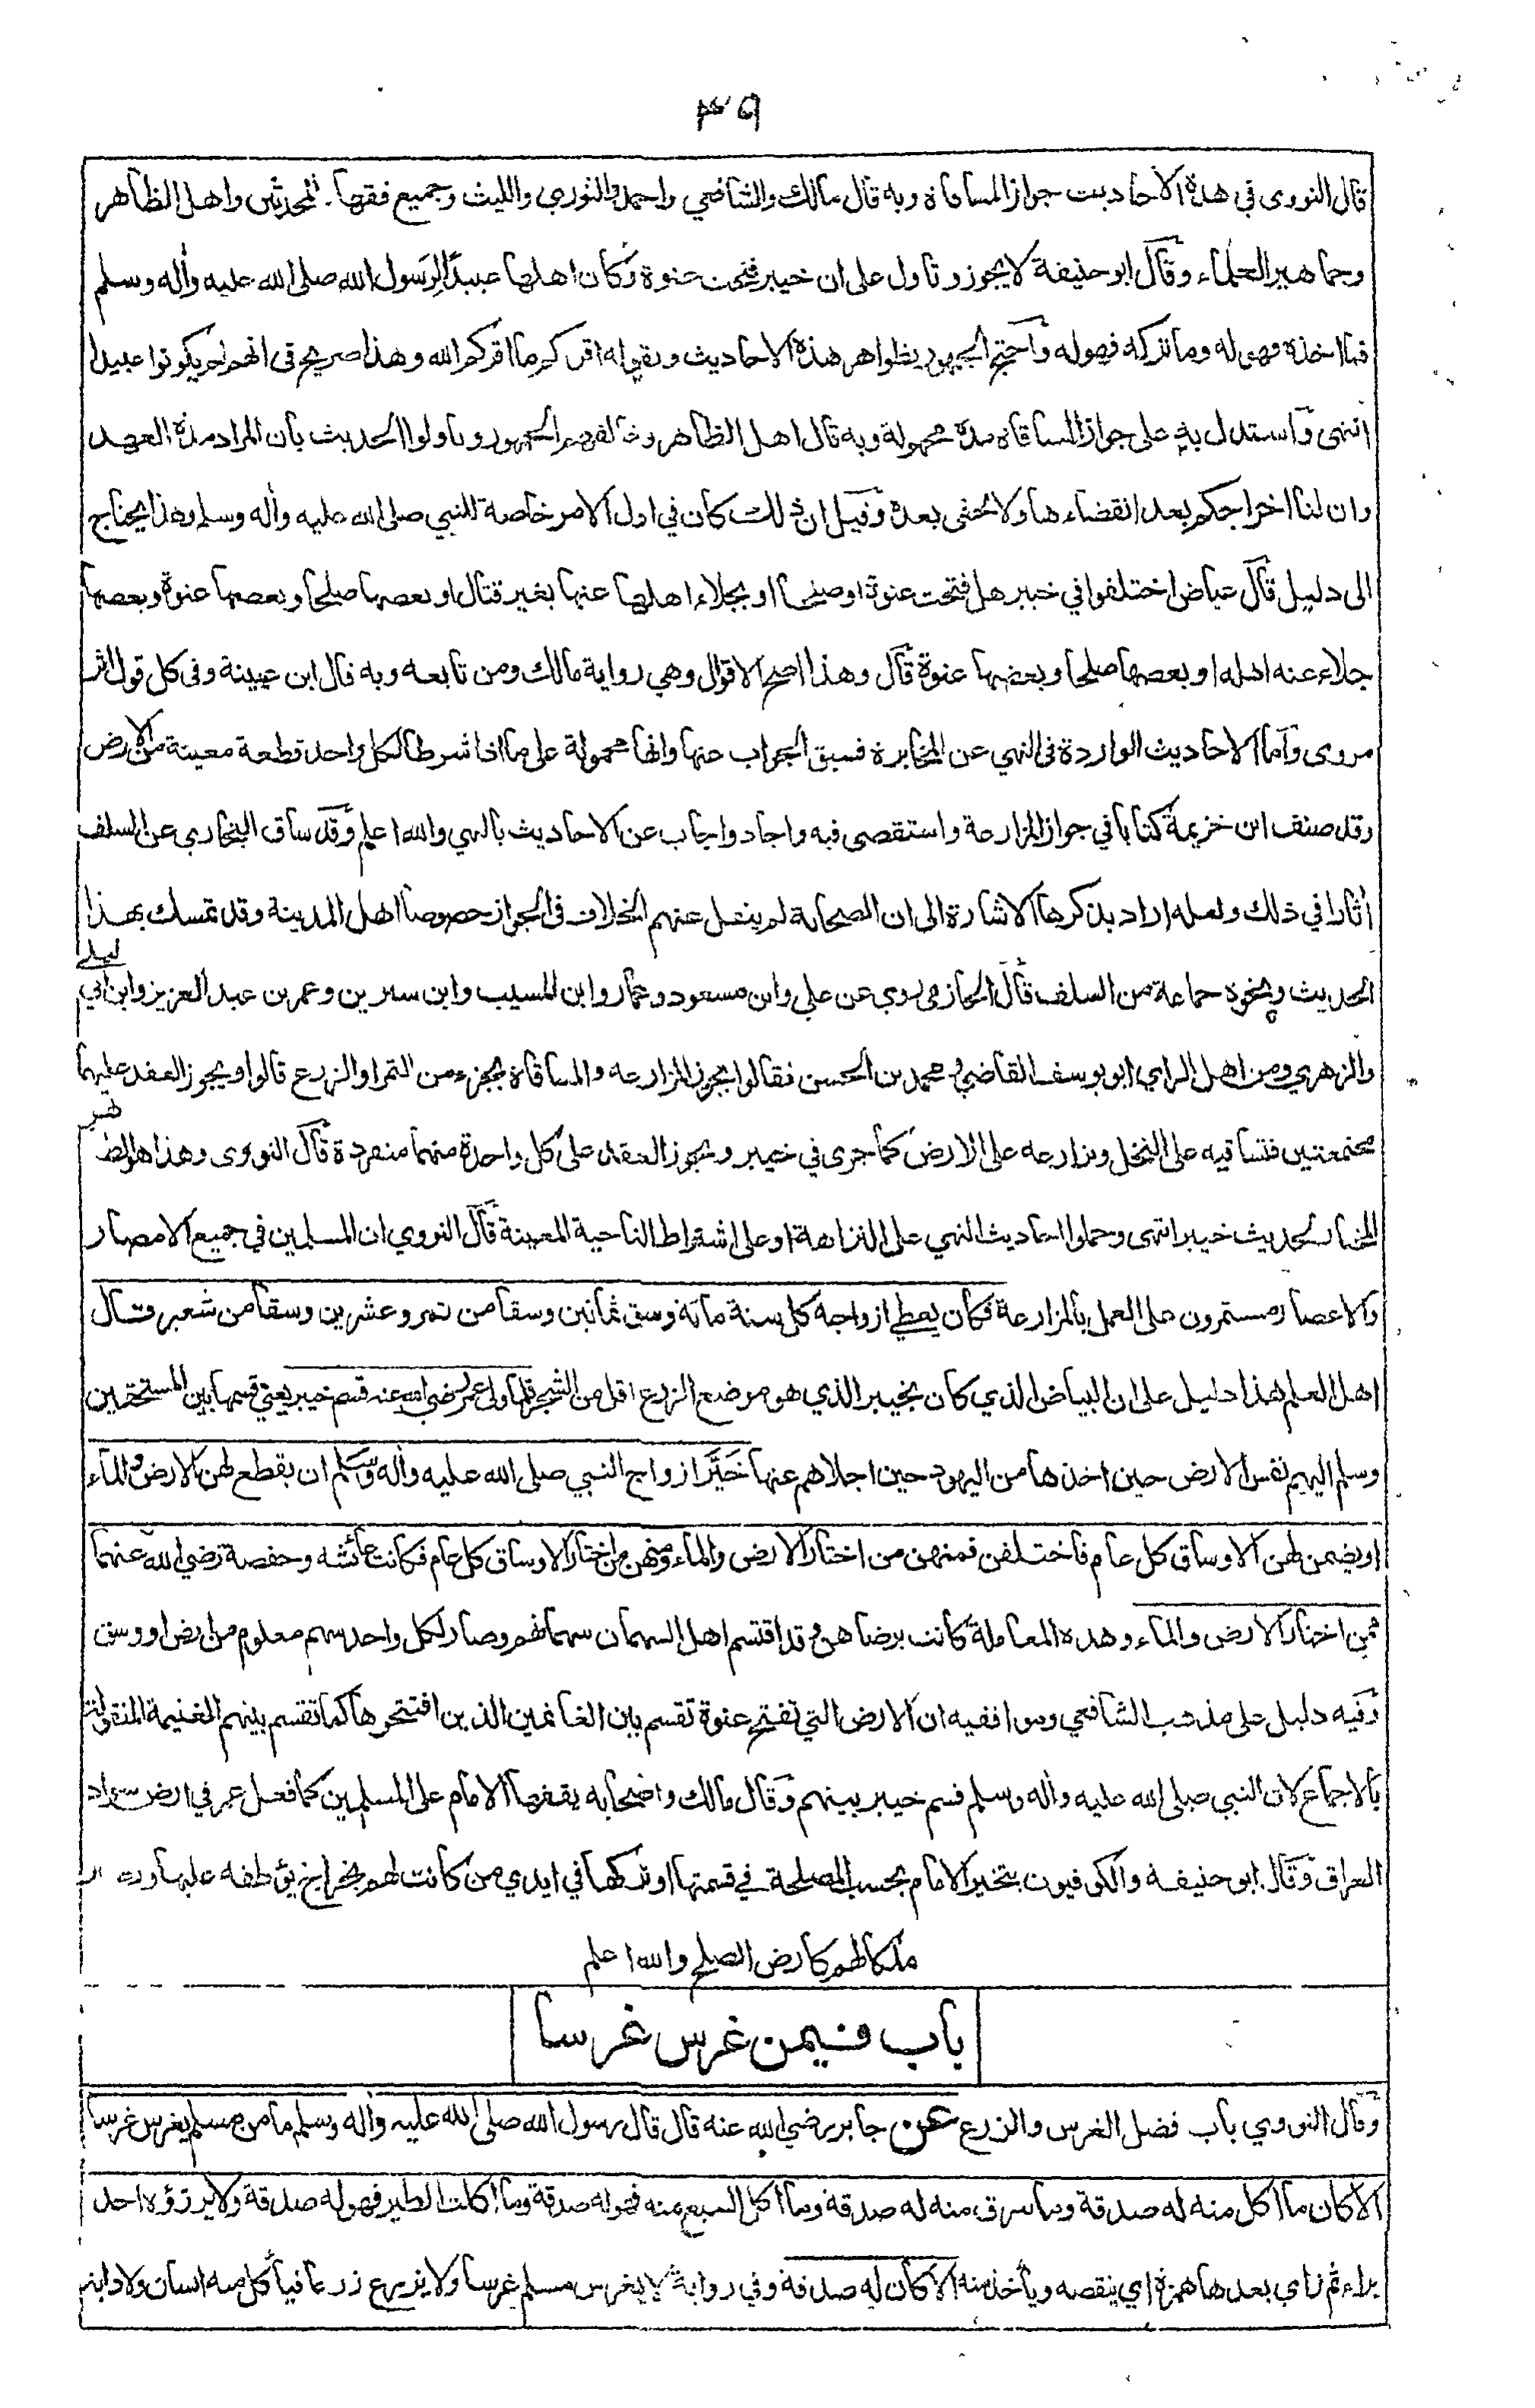 ٣٩
قال النووى فى هذه الأحاديث جواز المساقاة وبه قال مالك والشافعي واحمد والثوري والليث وجميع فقهاء المحدثين واهل الظاهر
وجماهير العلماء وقال ابو حنيفة لا يجوز وتاول على ان خيبر فتحت عنوة وكان اهلها عبيدا لرسول الله صلى الله عليه واٰله وسلم
فما اخذه فهو له وما تركه فهو له واحتج الجمهور بظواهر هذه الاحاديث وبقوله اقركم ما اقركم الله وهذا صريح فى انهم لم يكونوا عبيدا
انتهى واستدل به على جواز المساقاة مدة مجهولة وبه قال اهل الظاهر وخالفهم الجمهور وتاولوا الحديث بأن المراد مدة العهد
وان لنا اخراجكم بعد انقضاءها ولا يخفى بعده وقيل ان ذلك كان في اول الامر خاصة للنبي صلى الله عليه واٰله وسلم وهذا يحتاج
الى دليل قال عياض اختلفوا في خيبر هل فتحت عنوة او صلحا او بجلاء اهلها عنها بغير قتال او بعضها صلحا وبعضها عنوة وبعضها
جلاء عنه اهله او بعضها صلحا وبعضها عنوة قال وهذا اصح الاقوال وهي رواية مالك ومن تابعه وبه قال ابن عيينة وفى كل قول اثر
مروى واما الاحاديث الواردة فى النهي عن المخابرة فسبق الجواب عنها وانها محمولة على ما اذا شرطا لكل واحد قطعة معينة من الارض
وقد صنف ابن خزيمة كتابا في جواز المزارعة واستقصى فيه واجاد واجاب عن الاحاديث بالنهي والله اعلم وقد ساق البخاري عن السلف
اٰثارا في ذلك ولعله اراد بذكرها الاشارة الى ان الصحابة لم ينقل عنهم الخلاف فى الجواز خصوصا اهل المدينة وقد تمسك بهذا
الحديث ونحوه جماعة من السلف قال الحازمي روي عن علي وابن مسعود وعمار وابن المسيب وابن سيرين وعمر بن عبد العزيز وابن ابي ليلى
والزهري ومن اهل الراي ابو يوسف القاضي ومحمد بن الحسن فقالوا يجوز المزارعه والمساقاة بجزء من الثمر او الزرع قالوا ويجوز العقد عليهما
مجتمعتين فتساقيه على النخل وتزارعه على الارض كما جرى في خيبر ويجوز العقد على كل واحدة منهما منفردة قال النووى وهذا هو الظاهر
المختار لحديث خيبر انتهى وحملوا احاديث النهي على التنزاهة او على اشتراط الناحية المعينة قال النووي ان المسلمين في جميع الامصار
والاعصار مستمرون على العمل بالمزارعة فكان يعطي ازواجه كل سنة مائة وسق ثمانين وسقا من تمر وعشرين وسقا من شعير قال
اهل العلم هذا دليل على ان البياض الذي كان بخيبر الذي هو موضع الزرع اقل من الشجر فلما ولى عمر رضي الله عنه قسم خيبر يعني قسمها بين المستحقين
وسلم اليهم نفس الارض حين اخذها من اليهود حين اجلاهم عنها خَيَّر ازواج النبي صلى الله عليه واٰله وسلم ان يقطع لهن الارض والماء
او يضمن لهن الاوساق كل عام فاختلفن فمنهن من اختار الارض والماء ومنهن من اختار الاوساق كل عام فكانت عائشه وحفصة رضي الله عنهما
ممن اختار الارض والماء وهذه المعاملة كانت برضاهن وقد اقتسم اهل السهمان سهمانهم وصار لكل واحد سهم معلوم من ارض او وسق
وفيه دليل على مذهب الشافعي وموافقيه ان الارض التي تفتح عنوة تقسم بين الغانمين الذين افتتحوها كما تقسم بينهم الغنيمة المنقولة
بالاجماع لان النبي صلى الله عليه واٰله وسلم قسم خيبر بينهم وقال مالك واصحابه يقفها الامام على المسلمين كما فعل عمر في ارض سواد
العراق وقال ابو حنيفة والكوفيون يتخير الامام بحسب المصلحة في قسمتها او تركها في ايدي من كانت لهم بخراج يؤظفه عليها
ملكا لهم كارض الصلح والله اعلم
باب فيمن غرس غرسا
وقال النووي باب فضل الغرس والزرع عن جابر رضي الله عنه قال قال رسول الله صلى الله عليه واٰله وسلم ما من مسلم يغرس غرسا
الا كان ما اكل منه له صدقة وما سرق منه له صدقة وما اكل السبع منه فهو له صدقة وما اكلت الطير فهو له صدقة ولا يرزؤه احد
براء ثم زاي بعدها همزة اي ينقصه ويأخذ منه الا كان له صدقة وفي رواية لا يغرس مسلم غرسا ولا يزرع زرعا فيأكل منه انسان ولا دابة